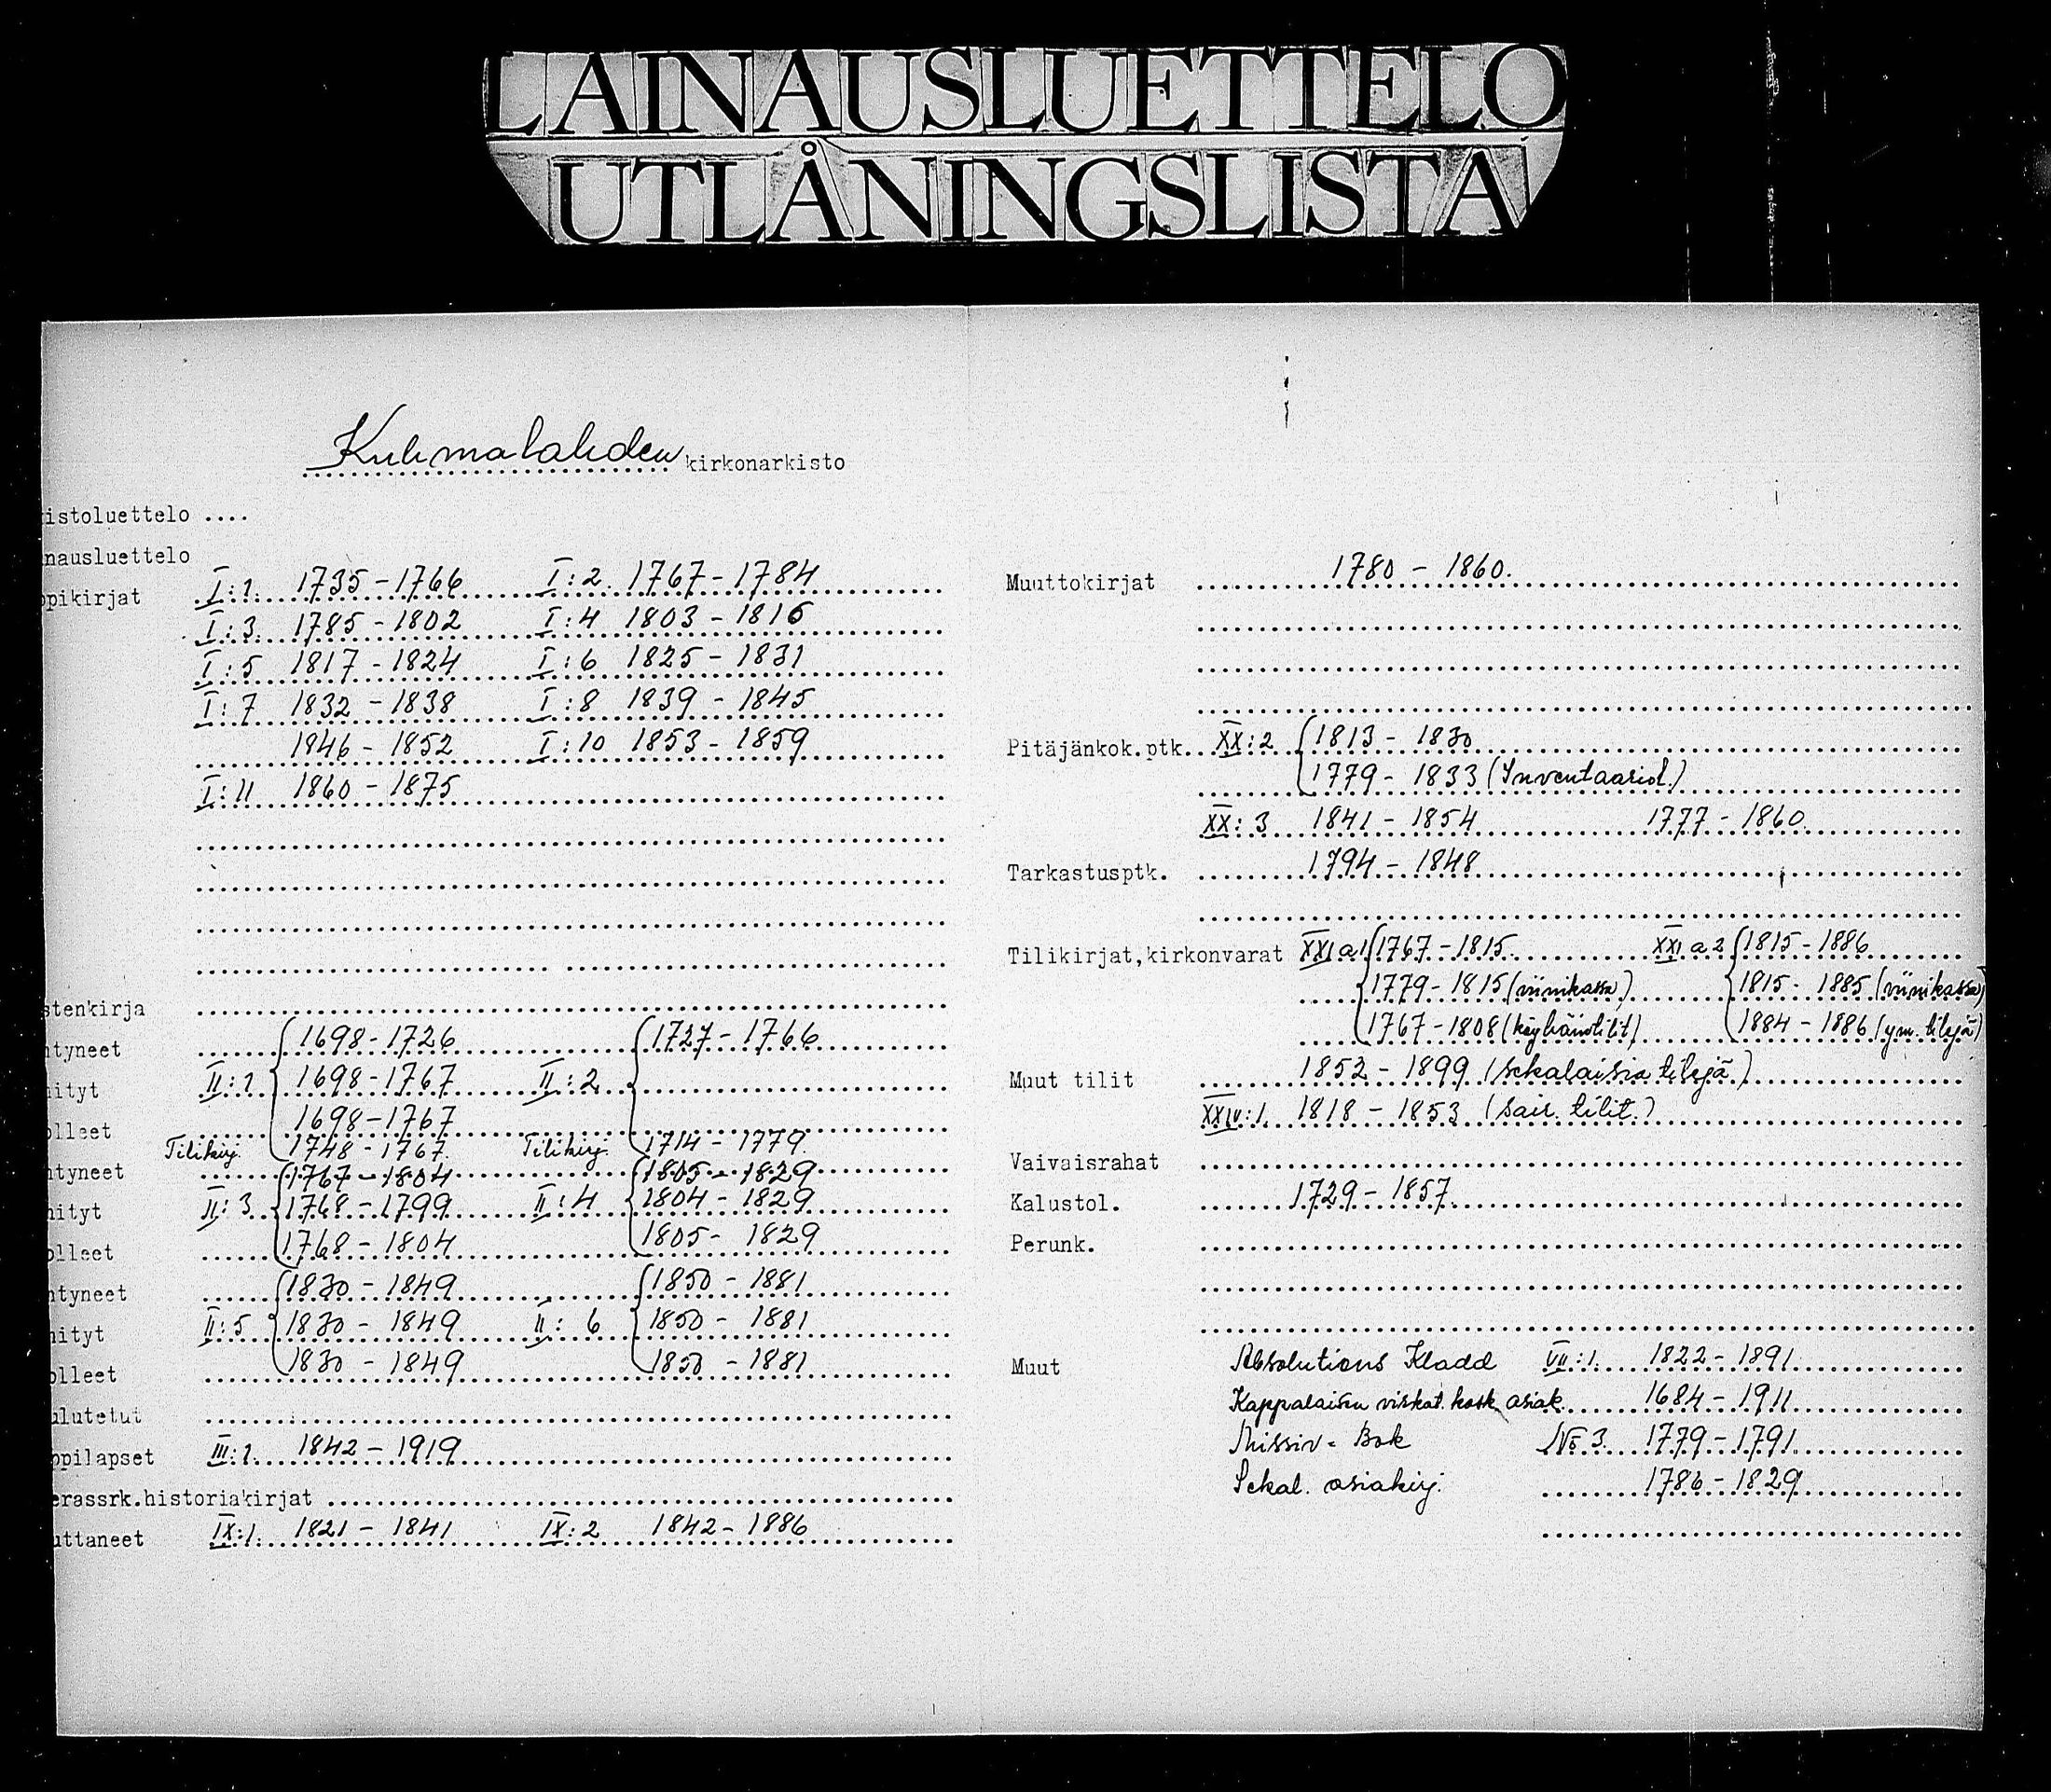 LAINAUSLUETTELO
UTLÅNINGSLISTA
Kuhmalahden kirkonarkisto
istoluettelo ....
nausluettelo
pikirjat I:1. 1735-1766 I:2. 1767-1784
I:3. 1785-1802 I:4 1803-1816
I:5 1817-1824 I:6 1825-1831
I:7 1832-1838 I:8 1839-1845
1846-1852 I:10 1853-1859
I:11 1860-1875
stenkirja
ntyneet 1698-1726 1727-1766
hityt II:1 1698-1767 II:2
olleet 1698-1767
Tilikirj. 1748-1767. Tilikirj. 1714-1779.
ntyneet 1767-1804 1805-1829
hityt II:3 1768-1799 II:4 1804-1829
olleet 1768-1804 1805-1829
ntyneet 1830-1849 1850-1881
hityt II:5 1830-1849 II:6 1850-1881
olleet 1830-1849 1850-1881
ulutetut
ppilapset III:1. 1842-1919
erassrk.historiakirjat
uttaneet IX:1. 1821-1841 IX:2 1842-1886
Muuttokirjat 1780-1860.
Pitäjänkok.ptk. XX:2 1813-1830
1779-1833 (Inventaariol.)
XX:3 1841-1854 1777-1860.
Tarkastusptk. 1794-1848
Tilikirjat,kirkonvarat XXI a1 1767-1815 XXI a2 1815-1886
1779-1815 (viinikassa) 1815-1885 (viinikassa)
1767-1808 (köyhäintilit) 1884-1886 (ym. tilejä)
Muut tilit 1852-1899 (sekalaisia tilejä)
XXIV:1. 1818-1853 (sair. tilit.)
Vaivaisrahat
Kalustol. 1729-1857.
Perunk.
Muut Absolutions Kladd VII:1. 1822-1891
Kappalaisen virkat. kosk. asiak. 1684-1911
Missiv-Bok No 3. 1779-1791.
Sekal. asiakirj. 1786-1829